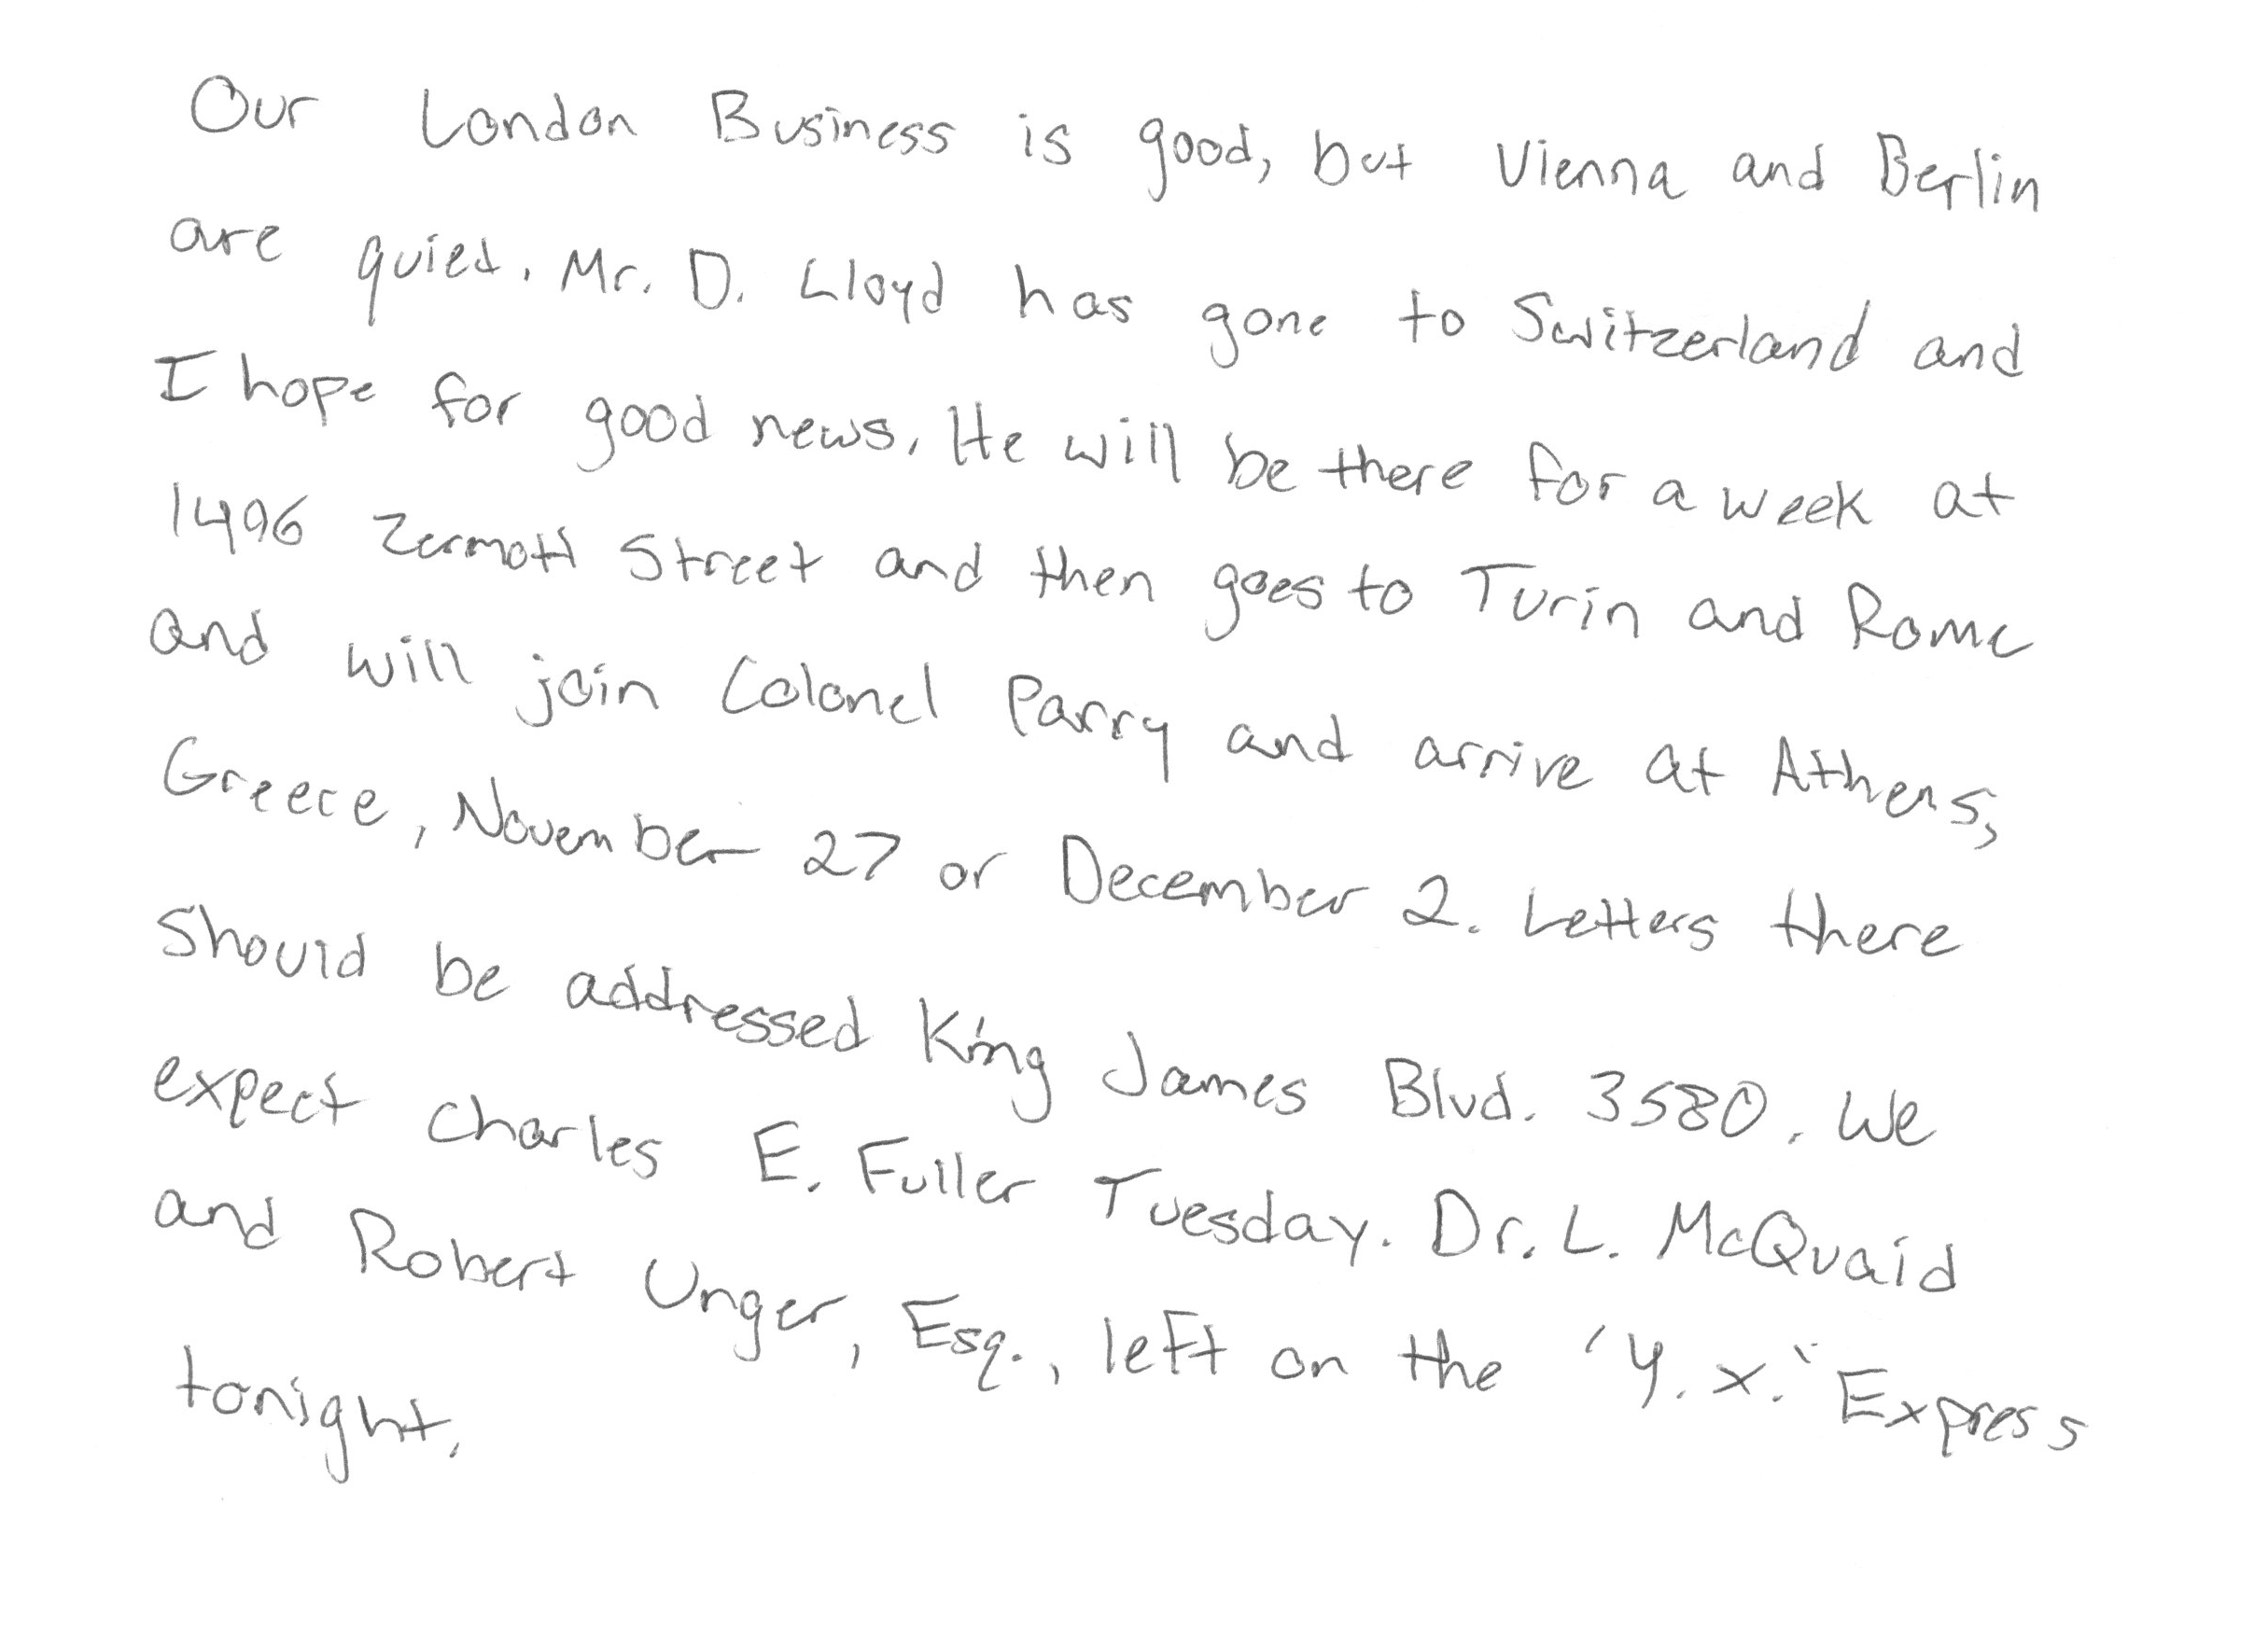 Our London Business is good, but Vienna and Berlin
are quiet. Mr. D. Lloyd has gone to Switzerland and
I hope for good news. He will be there for a week at
1496 Zermott Street and then goes to Turin and Rome
and will join Colonel Parry and arrive at Athens,
Greece, November 27 or December 2. Letters there
should be addressed King James Blvd. 3580. We
expect Charles E. Fuller Tuesday. Dr. L. McQuaid
and Robert Unger, Esq., left on the 'Y.X.' Express
tonight.